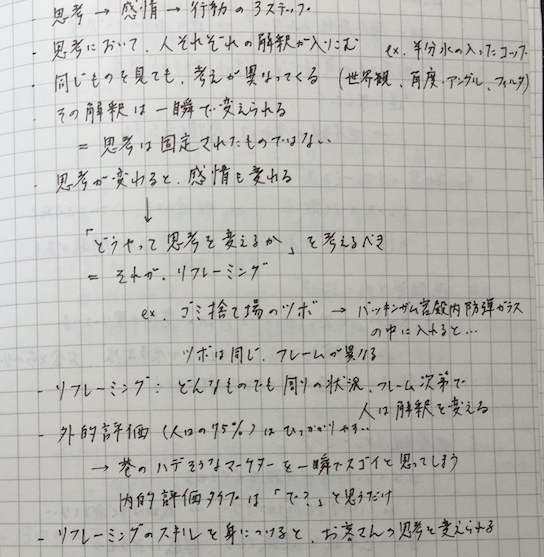 思考 → 感情 → 行動の3ステップ
・思考において、人それぞれの解釈が入りこむ ex. 半分水の入ったコップ
・同じものを見ても、考えが異なってくる (世界観、角度・アングル、フィルタ)
・その解釈は一瞬で変えられる
= 思考は固定されたものではない
・思考が変わると、感情も変わる
↓
「どうやって思考を変えるか」を考えるべき
= それが、リフレーミング
ex. ゴミ捨て場のツボ → バッキンガム宮殿内防弾ガラス
の中に入れると…
ツボは同じ、フレームが異なる
- リフレーミング: どんなものでも周りの状況、フレーム次第で
人は解釈を変える
- 外的評価 (人口の75%) はひっかかりやす…
→ 巷のハデそうなマーケターを一瞬でスゴイと思ってしまう
内的評価タイプは「で?」と思うだけ
- リフレーミングのスキルを身につけると、お客さんの思考を変えられる